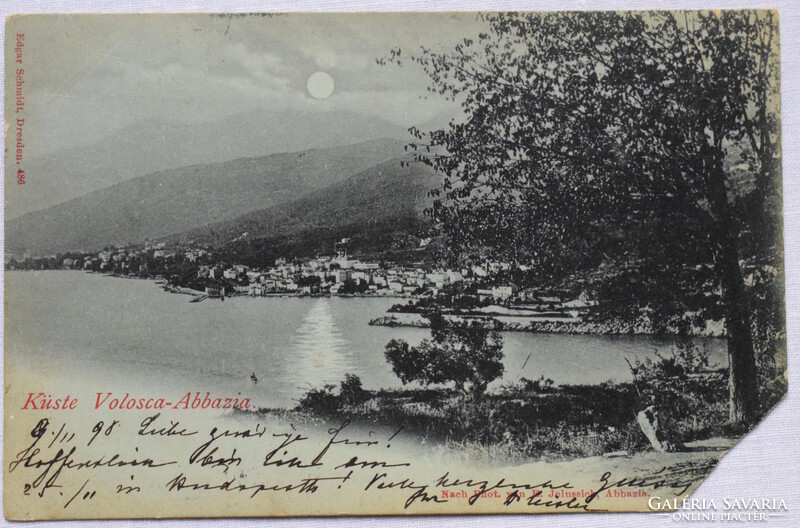 Edgar Schmidt, Dresden. 486
Küste Volosca-Abbazia.
9./11 98 Liebe
Hoffentlich bin ich am
25./11 in Budapest! Viele herzliche Grüsse
Nach Phot. von E. Jelussich, Abbazia.
GALÉRIA SAVARIA
ONLINE PIACTÉR